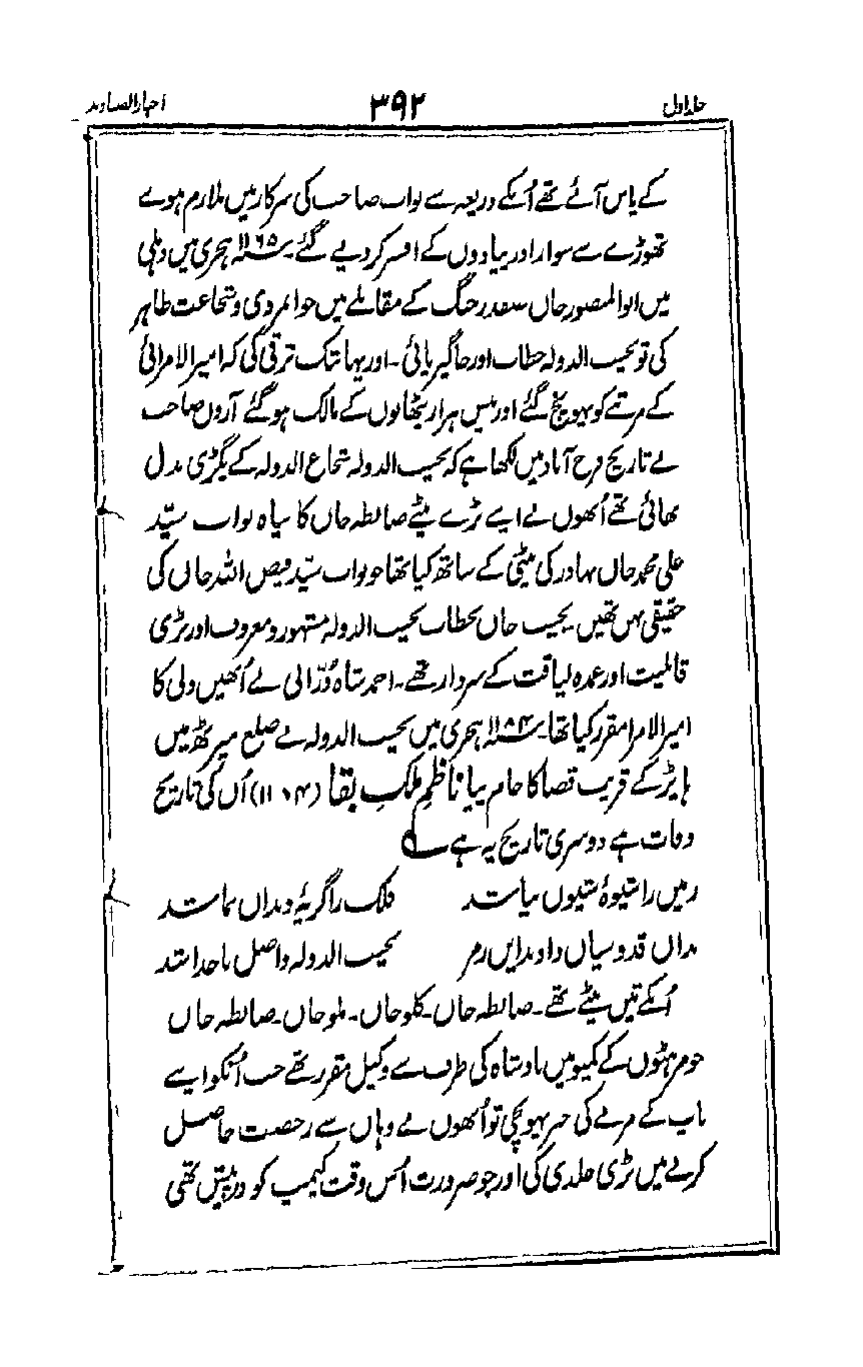 جلد اول ۳۹۲ اخبار الصنادید
کے پاس آئے تھے اُنکے ذریعہ سے نواب صاحب کی سرکار میں ملازم ہوے
تھوڑے سے سوار اور پیادوں کے افسر کر دیے گئے ۱۱۶۵؁ ہجری میں دہلی
میں ابوالمنصور خاں صفدر جنگ کے مقابلے میں جوانمردی و شجاعت ظاہر
کی تو نجیب الدولہ خطاب اور جاگیر پائی ۔ اور یہانتک ترقی کی کہ امیر الامرائی
کے مرتبے کو پہونچ گئے اور بیس ہزار پٹھانوں کے مالک ہو گئے آرون صاحب
نے تاریخ فرخ آباد میں لکھا ہے کہ نجیب الدولہ شجاع الدولہ کے پگڑی بدل
بھائی تھے اُنھوں نے اپنے بڑے بیٹے ضابطہ خاں کا بیاہ نواب سیّد
علی محمد خاں بہادر کی بیٹی کے ساتھ کیا تھا جو نواب سیّد فیض اللہ خاں کی
حقیقی بہن تھیں ۔ نجیب خاں بخطاب نجیب الدولہ مشہور و معروف اور بڑی
قابلیت اور عمدہ لیاقت کے سردار تھے ۔ احمد شاہ دُرّانی نے اُنھیں دلی کا
امیر الامرا مقرر کیا تھا ۱۱۸۴؁ ہجری میں نجیب الدولہ نے ضلع میرٹھ میں
ہاپڑ کے قریب قضا کا جام پیا ناظم ملکِ بقا (۱۱۰۴) اُن کی تاریخ
وفات ہے دوسری تاریخ یہ ہے
زمیں را شیوۂ شیون بپا شد فلک را گریۂ دنداں نما شد
بداں قدوسیاں داد ندایں رم نجیب الدولہ واصل با خدا شد
اُنکے تیں بیٹے تھے ۔ ضابطہ خاں ۔ کلو خاں ۔ ملو خاں ۔ ضابطہ خاں
جو مرہٹوں کے کمپو میں بادشاہ کی طرف سے وکیل مقرر تھے جب اُنکو اپنے
باپ کے مرنے کی خبر پہونچی تو اُنھوں نے وہاں سے رخصت حاصل
کرنے میں بڑی جلدی کی اور جو ضرورت اُس وقت کیمپ کو درپیش تھی